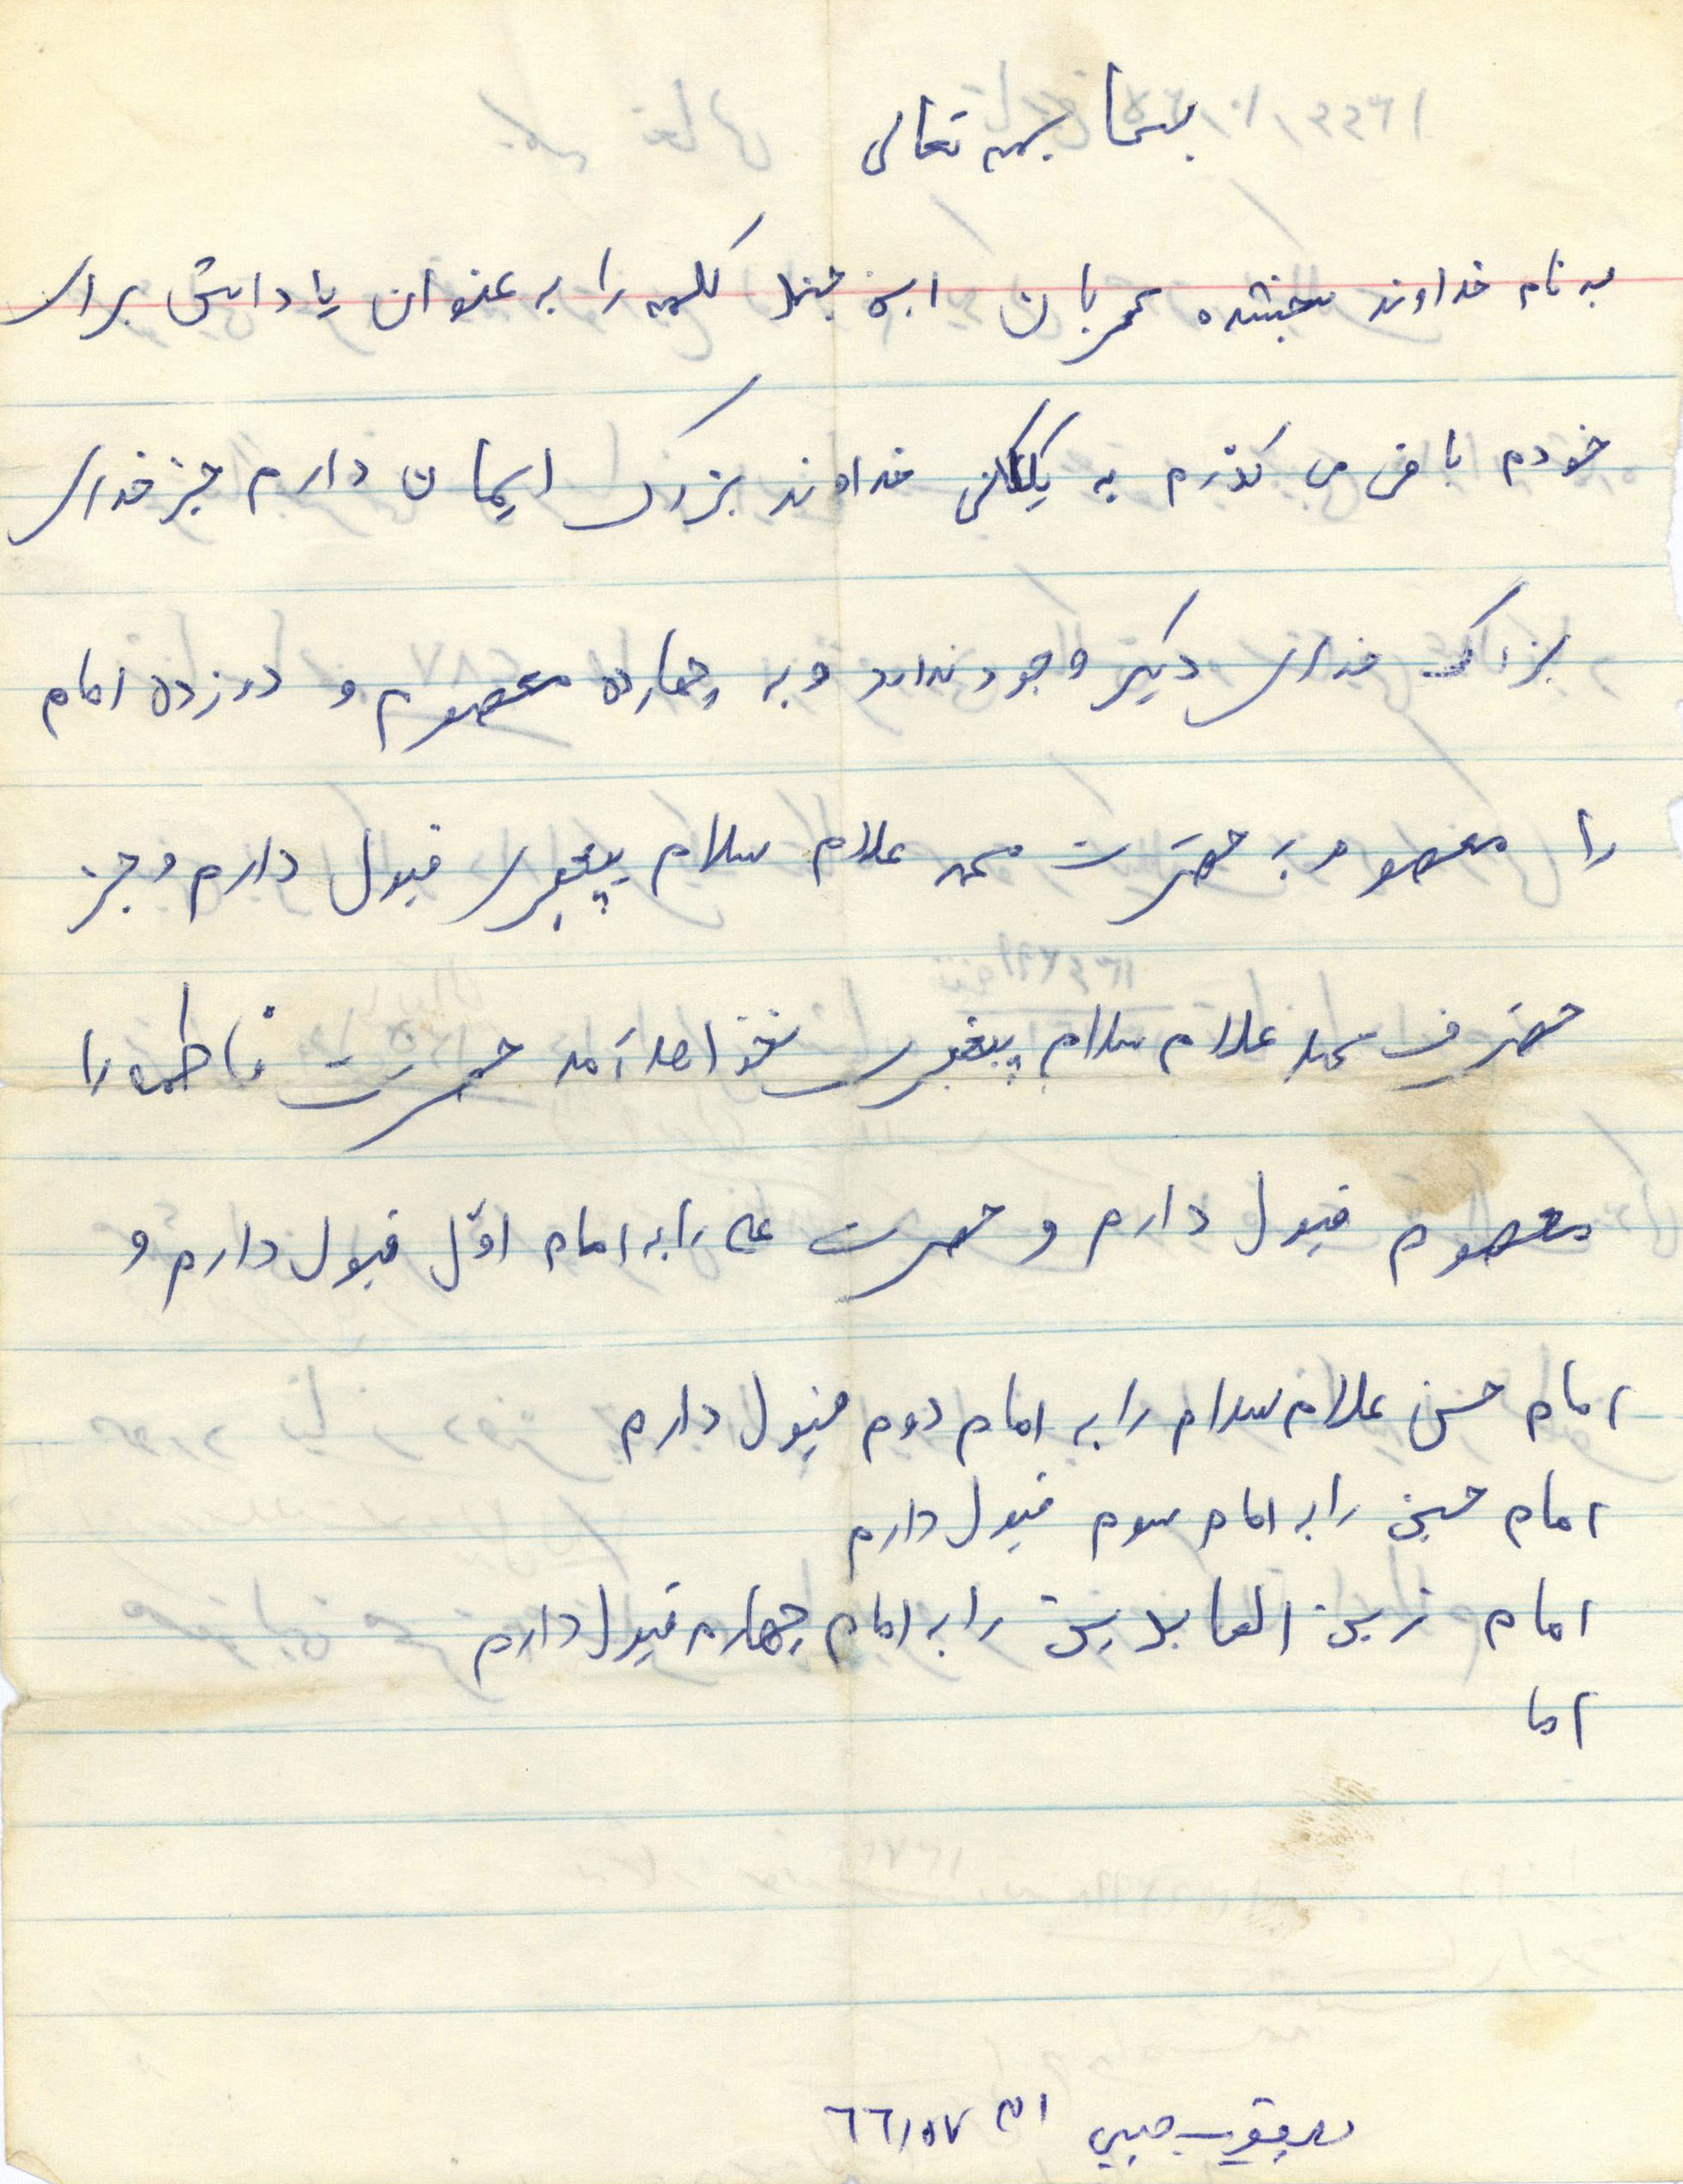 بسما یهه تعالی
به نام خداوند بخشنده مهربان این چند کلمه را به عنوان یاداشق برای
خودم باقی می گذرم به یکتای خداوند بزرگ ایمان دارم جز خدای
بزرگ خدای دیگر وجود ندارد و به چهارده معصوم و دوزده امام
را معصوم و به حضرت محمد علام سلام پیغبری قبول دارم و جز
حضرت محمد علام سلام پیغبری نخواهد آمد حضرت فاطمه را
معصوم قبول دارم و حضرت علی را به امام اوّل قبول دارم و
امام حسن علام سلام را به امام دوم قبول دارم
امام حسین را به امام سوم قبول دارم
امام زین العابدین را به امام چهارم قبول دارم
اما
یعقوب حبیبی ۶۶/۵۷